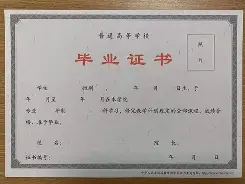 普通高等学校
毕业证书
照片
学生 性别 , 年 月 日生,于
年 月至 年 月在本学院
专业 学制
科学习,修完教学计划规定的全部课程,成绩合
格,准予毕业。
校 名: 院 长:
证书编号: 年 月 日